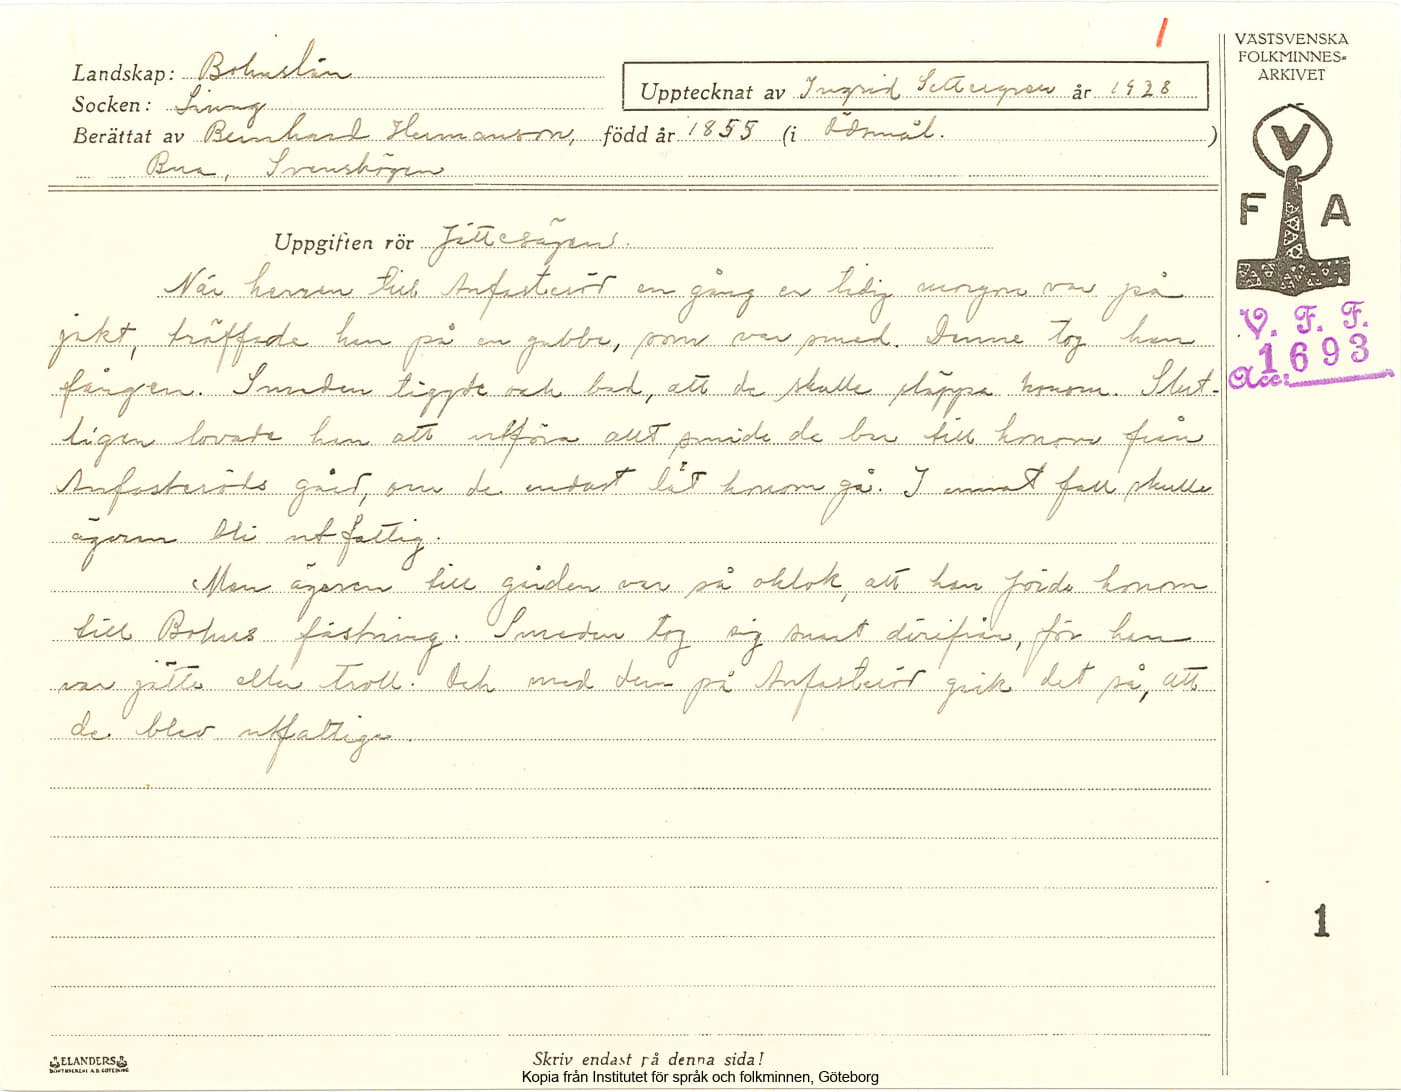 1
VÄSTSVENSKA
FOLKMINNES-
ARKIVET
Landskap: Bohuslän
Upptecknat av Ingrid Settergren år 1928
Socken: Ljung
Berättat av Bernhard Hermanson, född år 1855 (i Ödsmål. )
Bua, Svenshögen
V
F A
Uppgiften rör Jättesägen.
När herren till Anfasteröd en gång en tidig morgon var på
jakt, träffade han på en gubbe, som var smed. Denne tog han
fången. Smeden tiggde och bad, att de skulle släppa honom. Slut-
ligen lovade han att utföra allt smide de bar till honom från
Anfasteröds gård, om de endast lät honom gå. I annat fall skulle
ägaren bli utfattig.
Men ägaren till gården var så oklok, att han förde honom
till Bohus fästning. Smeden tog sig snart därifrån, för han
var jätte eller troll. Och med dem på Anfasteröd gick det så, att
de blev utfattiga.
V. F. F.
Acc: 1693
1
ELANDERS
BOKTRYCKERI A.B. GÖTEBORG
Skriv endast på denna sida!
Kopia från Institutet för språk och folkminnen, Göteborg